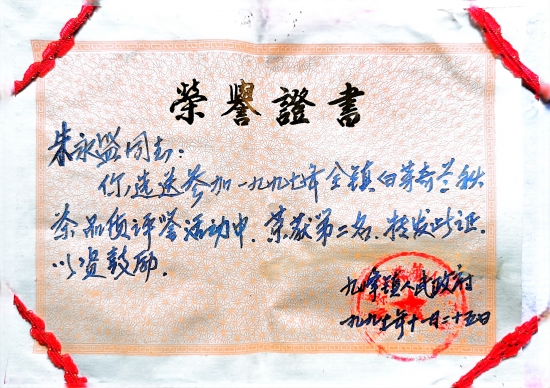 榮譽證書
朱永盛同志：
你选送参加一九九七年全镇白芽奇兰秋
茶品质评鉴活动中，荣获第二名，特发此证，
以资鼓励。
九峰镇人民政府
一九九七年十一月二十五日